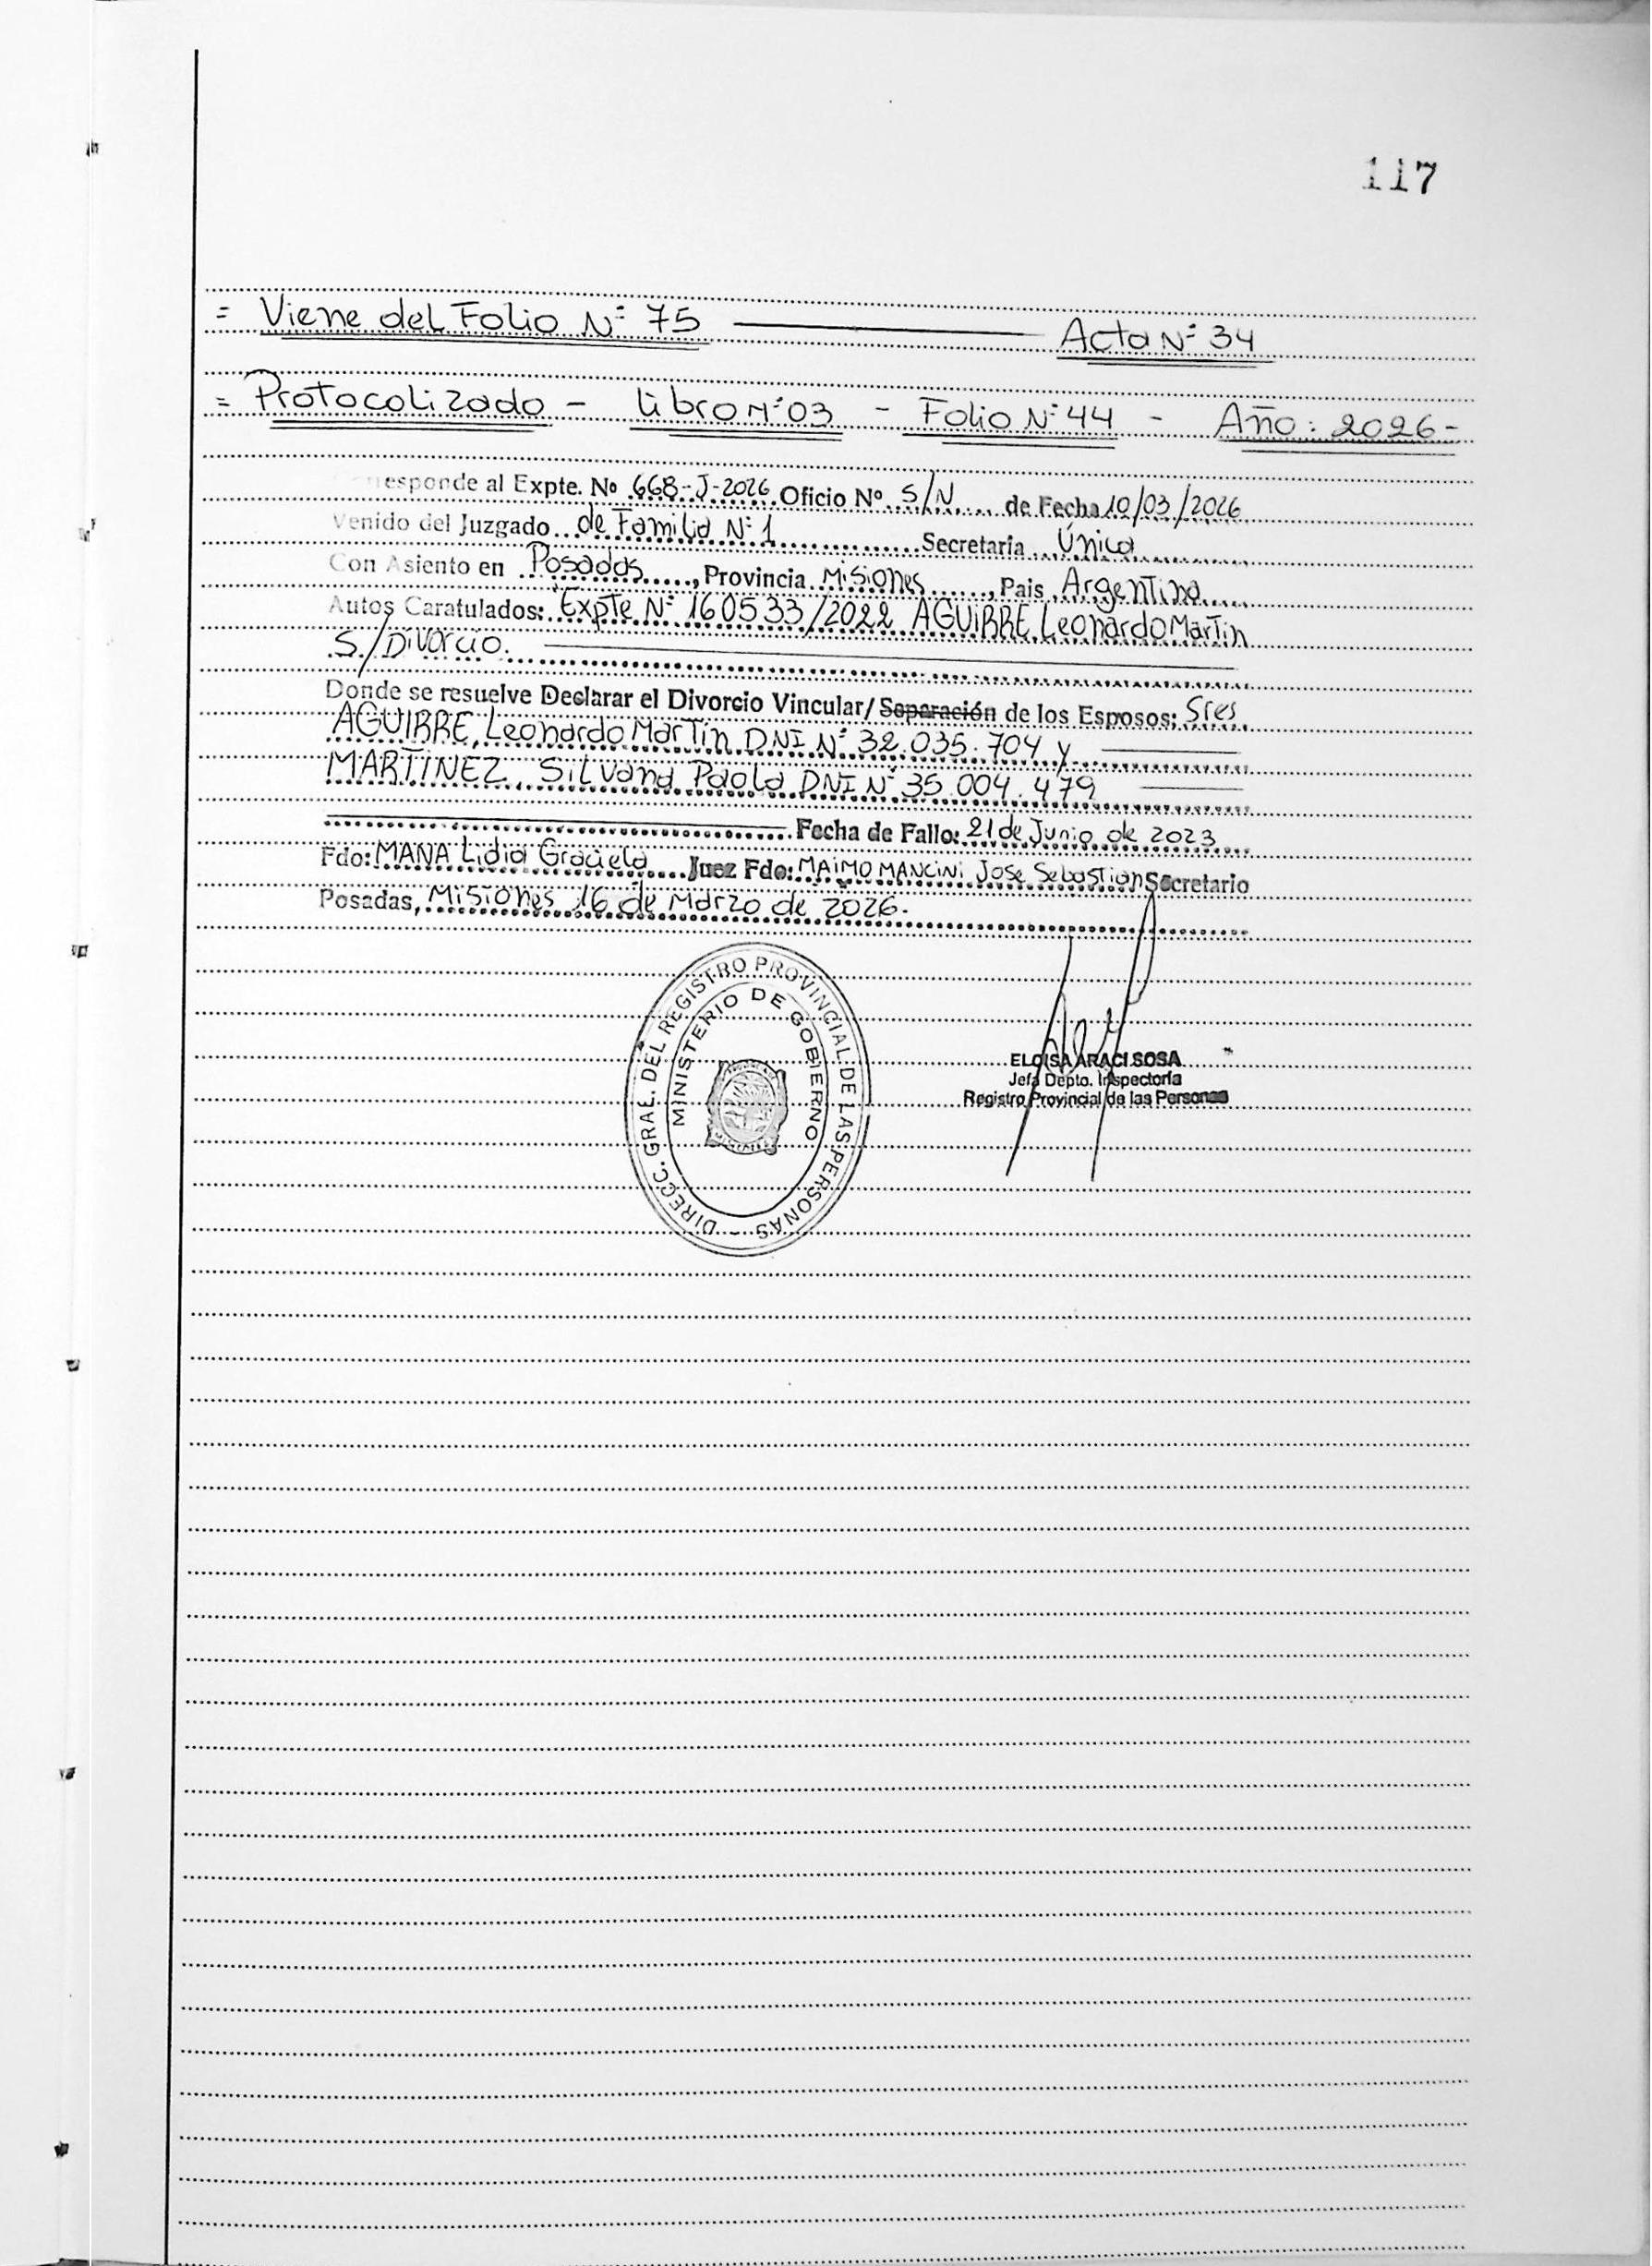 117
= Viene del Folio Nº 75 ——— Acta Nº 34
= Protocolizado - Libro Nº 03 - Folio Nº 44 - Año: 2026-
esponde al Expte. Nº 668-J-2026 Oficio Nº S/N de Fecha 10/03/2026
Venido del Juzgado de Familia Nº 1 Secretaria Única
Con Asiento en Posadas, Provincia Misiones, Pais Argentina
Autos Caratulados: Expte Nº 160533/2022 AGUIRRE Leonardo Martin
S/Divorcio.
Donde se resuelve Declarar el Divorcio Vincular/ Separación de los Esposos: Sres
AGUIRRE, Leonardo Martin DNI Nº 32.035.704 y
MARTINEZ, Silvana Paola DNI Nº 35.004.479
Fecha de Fallo: 21 de Junio de 2023
Fdo: MANA Lidia Graciela Juez Fdo: MAIMO MANCINI Jose Sebastian Secretario
Posadas, Misiones 16 de Marzo de 2026.
DIRECC. GRAL. DEL REGISTRO PROVINCIAL DE LAS PERSONAS -
MINISTERIO DE GOBIERNO
ELOISA ARACI SOSA
Jefa Depto. Inspectoría
Registro Provincial de las Personas